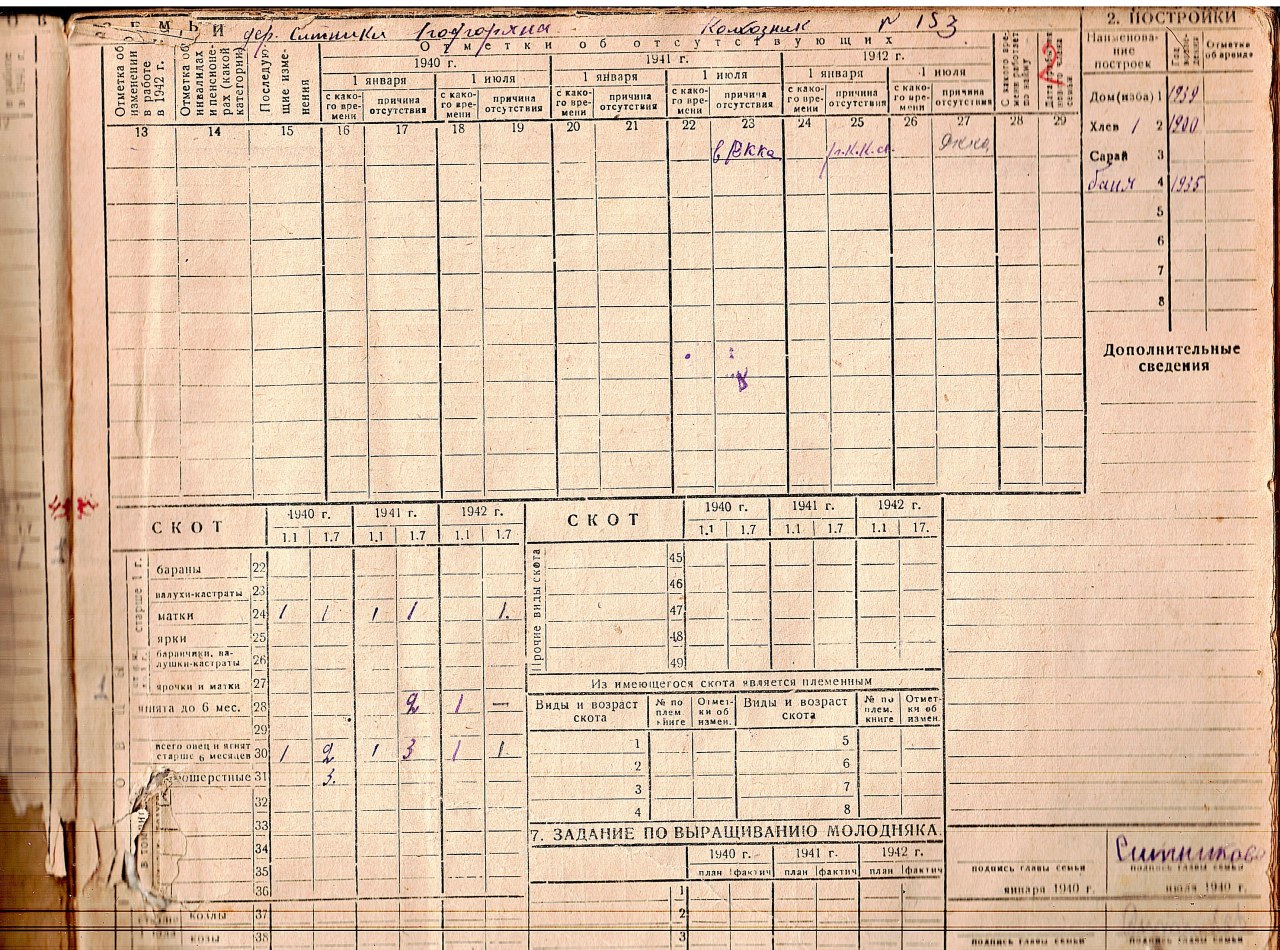 МЬИ дер. Ситники Колхозник № 153
Отметки об отсутствующих
Отметка об изменении в работе в 1942 г.
Отметка об инвалидах и пенсионерах (какой категории)
Последующие изменения
1940 г. 1941 г. 1942 г.
1 января 1 июля 1 января 1 июля 1 января 1 июля
с какого времени причина отсутствия с какого времени причина отсутствия с какого времени причина отсутствия с какого времени причина отсутствия с какого времени причина отсутствия с какого времени причина отсутствия
С какого времени работает по найму
13 14 15 16 17 18 19 20 21 22 23 24 25 26 27 28 29
в РККА
2. ПОСТРОЙКИ
Наименование построек Год Отметка об аренде
Дом (изба) 1 1939
Хлев 1 2 1900
Сарай 3
баня 4 1935
5
6
7
8
Дополнительные сведения
СКОТ 1940 г. 1941 г. 1942 г.
1.1 1.7 1.1 1.7 1.1 1.7
старше 1 г.
бараны 22
валухи-кастраты 23
матки 24 1 1 1 1 1.
ярки 25
баранчики, валушки-кастраты 26
ярочки и матки 27
ягнята до 6 мес. 28 2 1 —
29
всего овец и ягнят старше 6 месяцев 30 1 2 1 3 1 1
ошерстные 31 3.
32
33
34
35
36
козлы 37
козы 38
СКОТ 1940 г. 1941 г. 1942 г.
1.1 1.7 1.1 1.7 1.1 17.
Прочие виды скота
45
46
47
48
49
Из имеющегося скота является племенным
Виды и возраст скота № по плем. книге Отметки об измен. Виды и возраст скота № по плем. книге Отметки об измен.
1 5
2 6
3 7
4 8
7. ЗАДАНИЕ ПО ВЫРАЩИВАНИЮ МОЛОДНЯКА.
1940 г. 1941 г. 1942 г.
план фактич план фактич план фактич
1
2
3
Ситникова
подпись главы семьи подпись главы семьи
января 1940 г. июля 1940 г.
подпись главы семьи подпись главы семьи